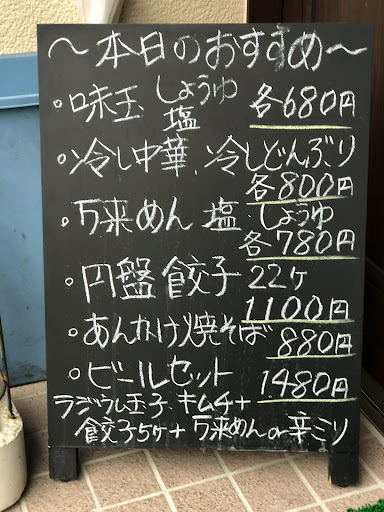 ～本日のおすすめ～
・味玉 しょうゆ
塩 各680円
・冷し中華、冷しどんぶり
各800円
・万来めん 塩 しょうゆ
各780円
・円盤餃子 22ヶ
1100円
・あんかけ焼そば 880円
・ビールセット 1480円
ラジウム玉子、キムチ+
餃子5ヶ+万来めんor辛ミソ